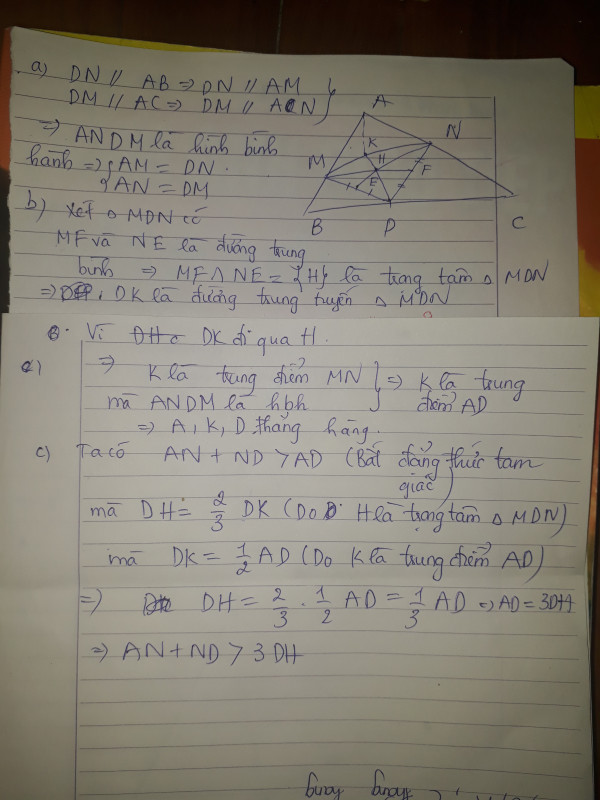 a) DN // AB => DN // AM
DM // AC => DM // AN
=> ANDM là hình bình
hành => { AM = DN.
{ AN = DM
b) Xét Δ MDN có
MF và NE là đường trung
bình => MF ∧ NE = {H} là trọng tâm Δ MDN
=> DK là đường trung tuyến Δ MDN
A
N
K
M
H
F
E
B
D
C
Vì DK đi qua H.
=> K là trung điểm MN } => K là trung
mà ANDM là hbh điểm AD
=> A, K, D thẳng hàng.
c) Ta có AN + ND > AD (Bất đẳng thức tam
giác)
mà DH = 2/3 DK (Do H là trọng tâm Δ MDN)
mà DK = 1/2 AD (Do K là trung điểm AD)
=> DH = 2/3 . 1/2 AD = 1/3 AD => AD = 3DH
=> AN + ND > 3 DH